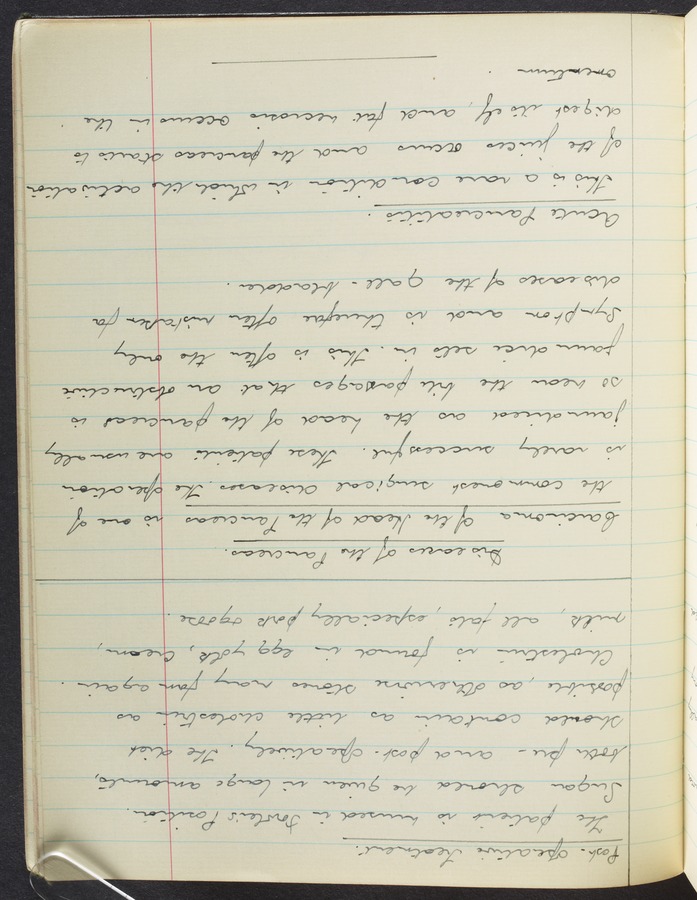 Post-operative treatment.
The patient is nursed in Fowler's Position.
Sugar should be given in large amounts,
both pre- and post-operatively. The diet
should contain as little cholestrin as
possible, as otherwise stones may form again.
Cholestrin is found in egg yolk, cream,
milk, all fats, especially pork & goose.
Diseases of the Pancreas.
Carcinoma of the Head of the Pancreas is one of
the commonest surgical diseases. The operation
is rarely successful. These patients are usually
jaundiced as the head of the pancreas is
so near the bile passages that an obstructive
jaundice sets in. This is often the only
symptom and is therefore often mistaken for
diseases of the gall-bladder.
Acute Pancreatitis.
This is a rare condition in which the activation
of the juices occurs and the pancreas starts to
digest itself, and fat necrosis occurs in the
omentum.